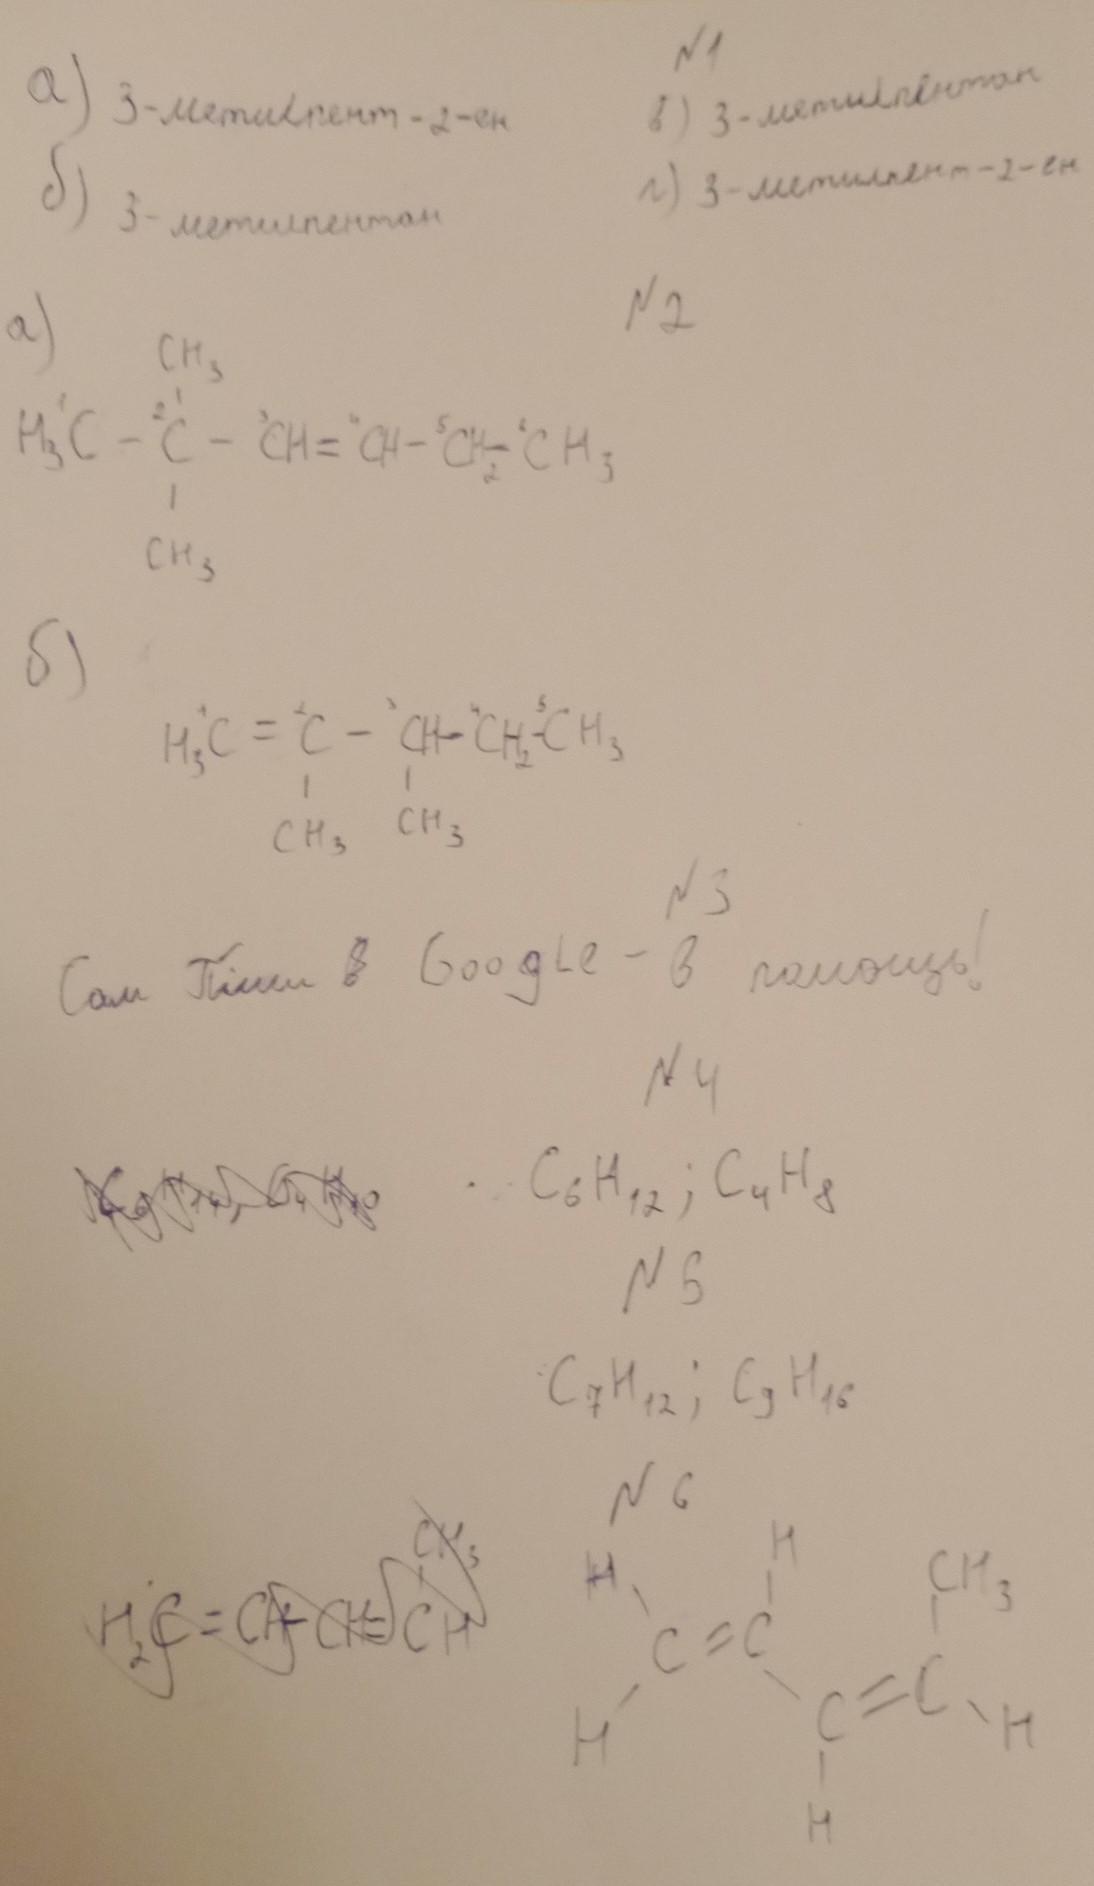 N1
а) 3-метилпент-2-ен в) 3-метилпентан
б) 3-метилпентан г) 3-метилпент-2-ен
N2
а)
CH3
H3¹C - ²C - ³CH=⁴CH-⁵CH2-⁶CH3
CH3
б)
H3¹C = ²C - ³CH-⁴CH2-⁵CH3
CH3 CH3
N3
Сам Пиши в Google - в помощь!
N4
C6H12; C4H8
N5
C7H12; C9H16
N6
CH3
H2C=CH-CH=CH
H H CH3
C=C
H C=C H
H